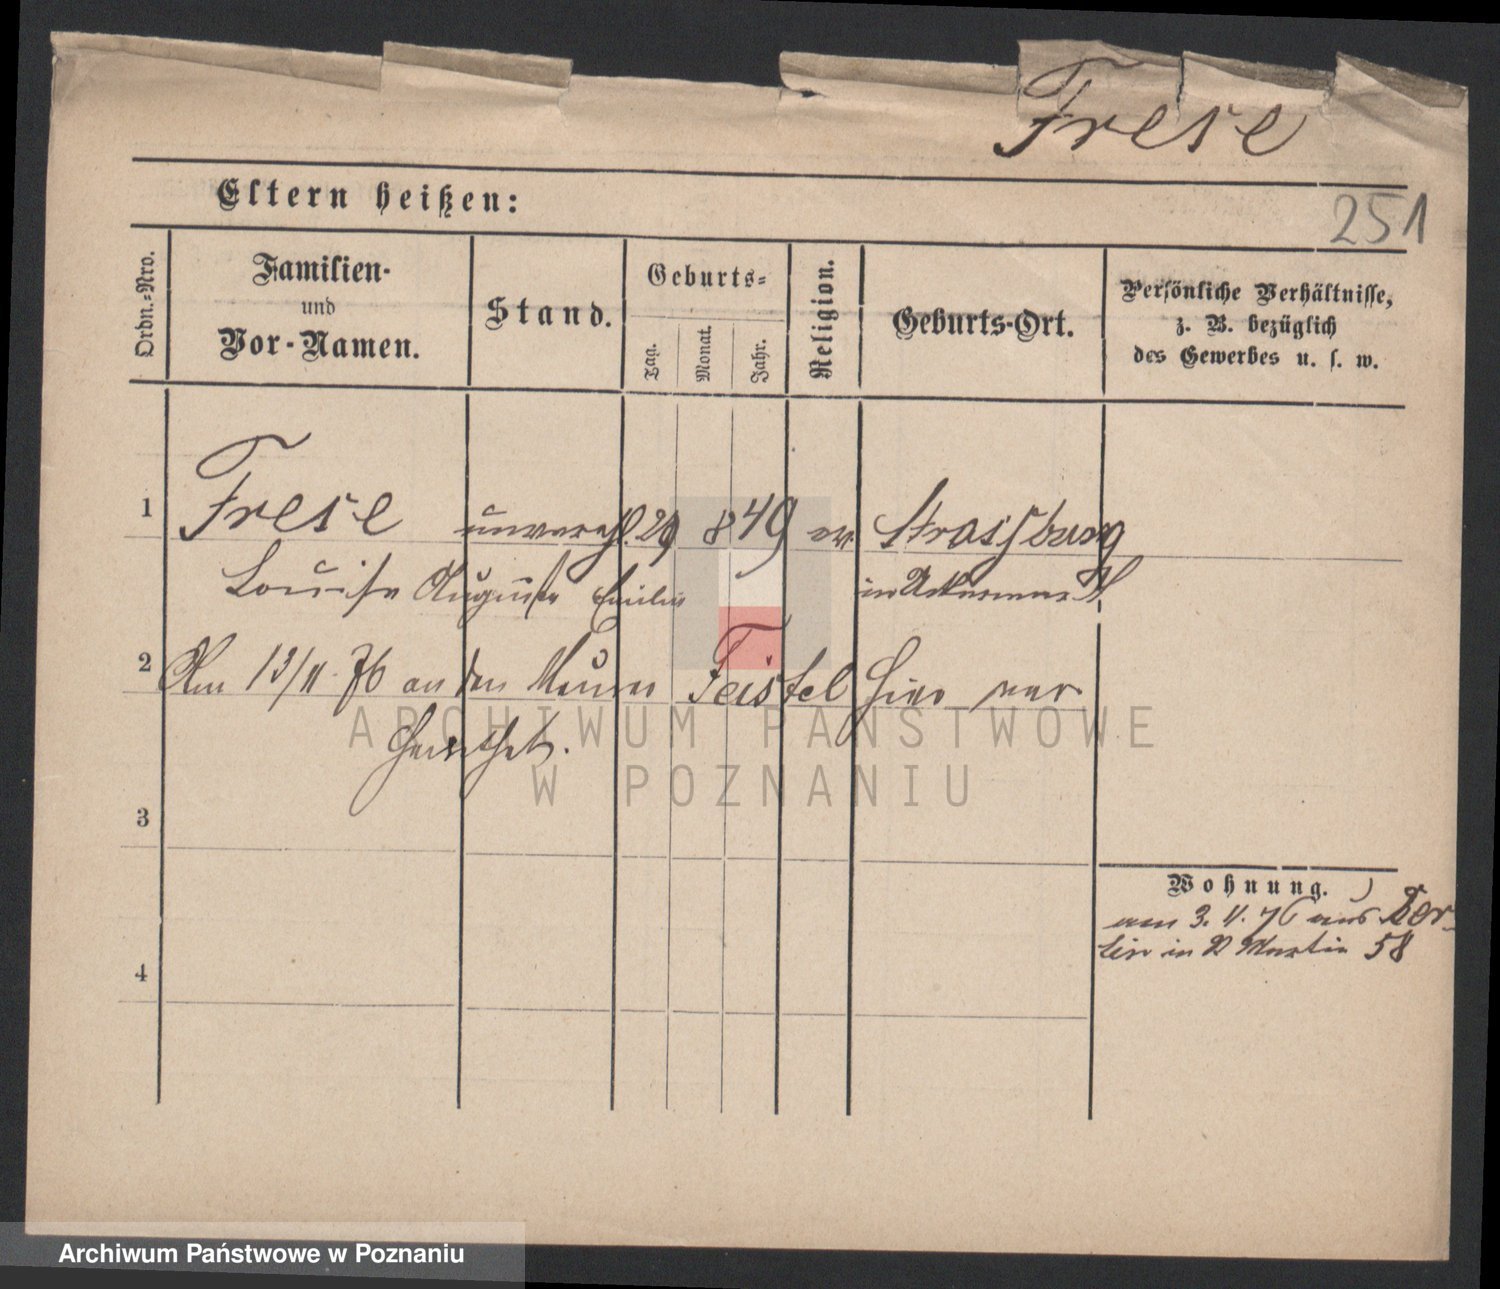 Frese
251
Eltern heißen:
Ordn.-Nro.
Familien-
und
Vor-Namen.
Stand.
Geburts-
Tag.
Monat.
Jahr.
Religion.
Geburts-Ort.
Persönliche Verhältnisse,
z. B. bezüglich
des Gewerbes u. s. w.
1 Frese unverehl. 29 8 49 ev. Strassburg
Louise Auguste Emilie in
2 Am 13/11. 76 an den Maurer Feistel hier ver
heirathet.
ARCHIWUM PAŃSTWOWE
W POZNANIU
3
Wohnung.
am 3. 11. 76 aus Ber-
lin in St Martin 58
4
Archiwum Państwowe w Poznaniu